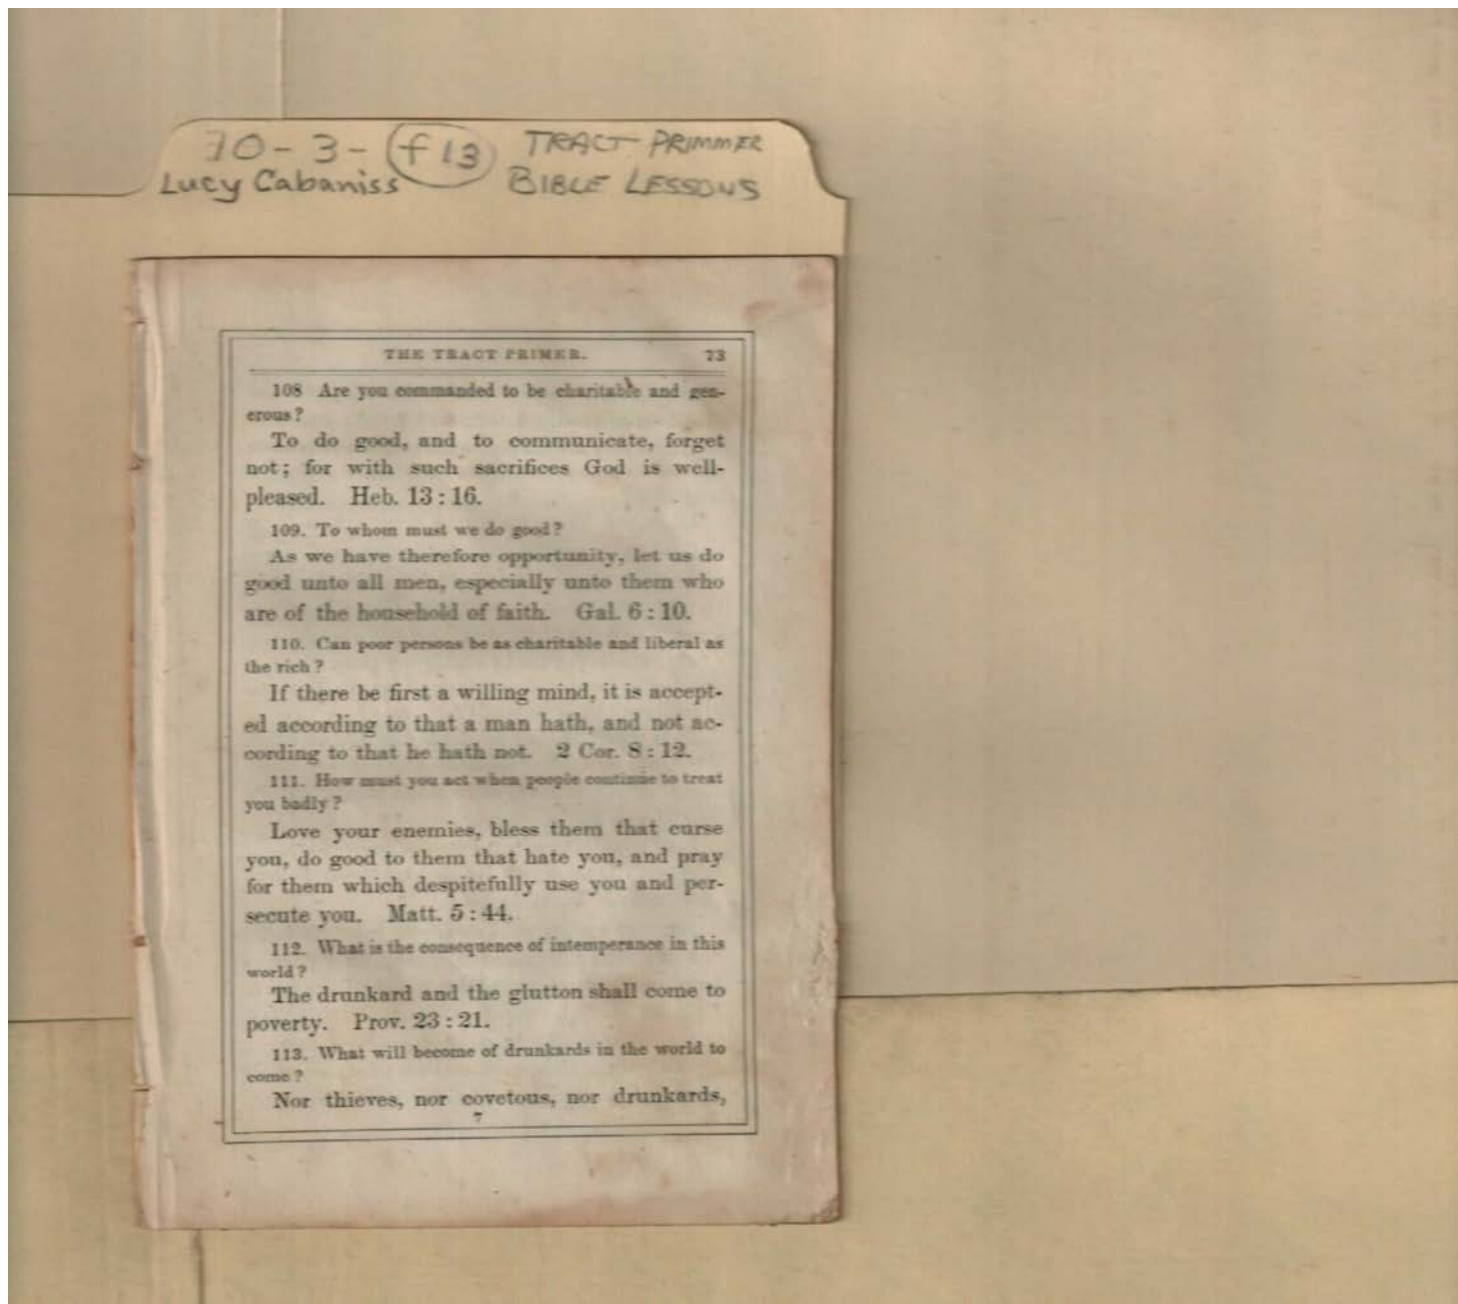 70-3-f13 TRACT PRIMMER
Lucy Cabaniss BIBLE LESSONS
THE TRACT PRIMER. 73
108 Are you commanded to be charitable and gen-
erous?
To do good, and to communicate, forget
not; for with such sacrifices God is well-
pleased. Heb. 13 : 16.
109. To whom must we do good?
As we have therefore opportunity, let us do
good unto all men, especially unto them who
are of the household of faith. Gal. 6 : 10.
110. Can poor persons be as charitable and liberal as
the rich?
If there be first a willing mind, it is accept-
ed according to that a man hath, and not ac-
cording to that he hath not. 2 Cor. 8 : 12.
111. How must you act when people continue to treat
you badly?
Love your enemies, bless them that curse
you, do good to them that hate you, and pray
for them which despitefully use you and per-
secute you. Matt. 5 : 44.
112. What is the consequence of intemperance in this
world?
The drunkard and the glutton shall come to
poverty. Prov. 23 : 21.
113. What will become of drunkards in the world to
come?
Nor thieves, nor covetous, nor drunkards,
7